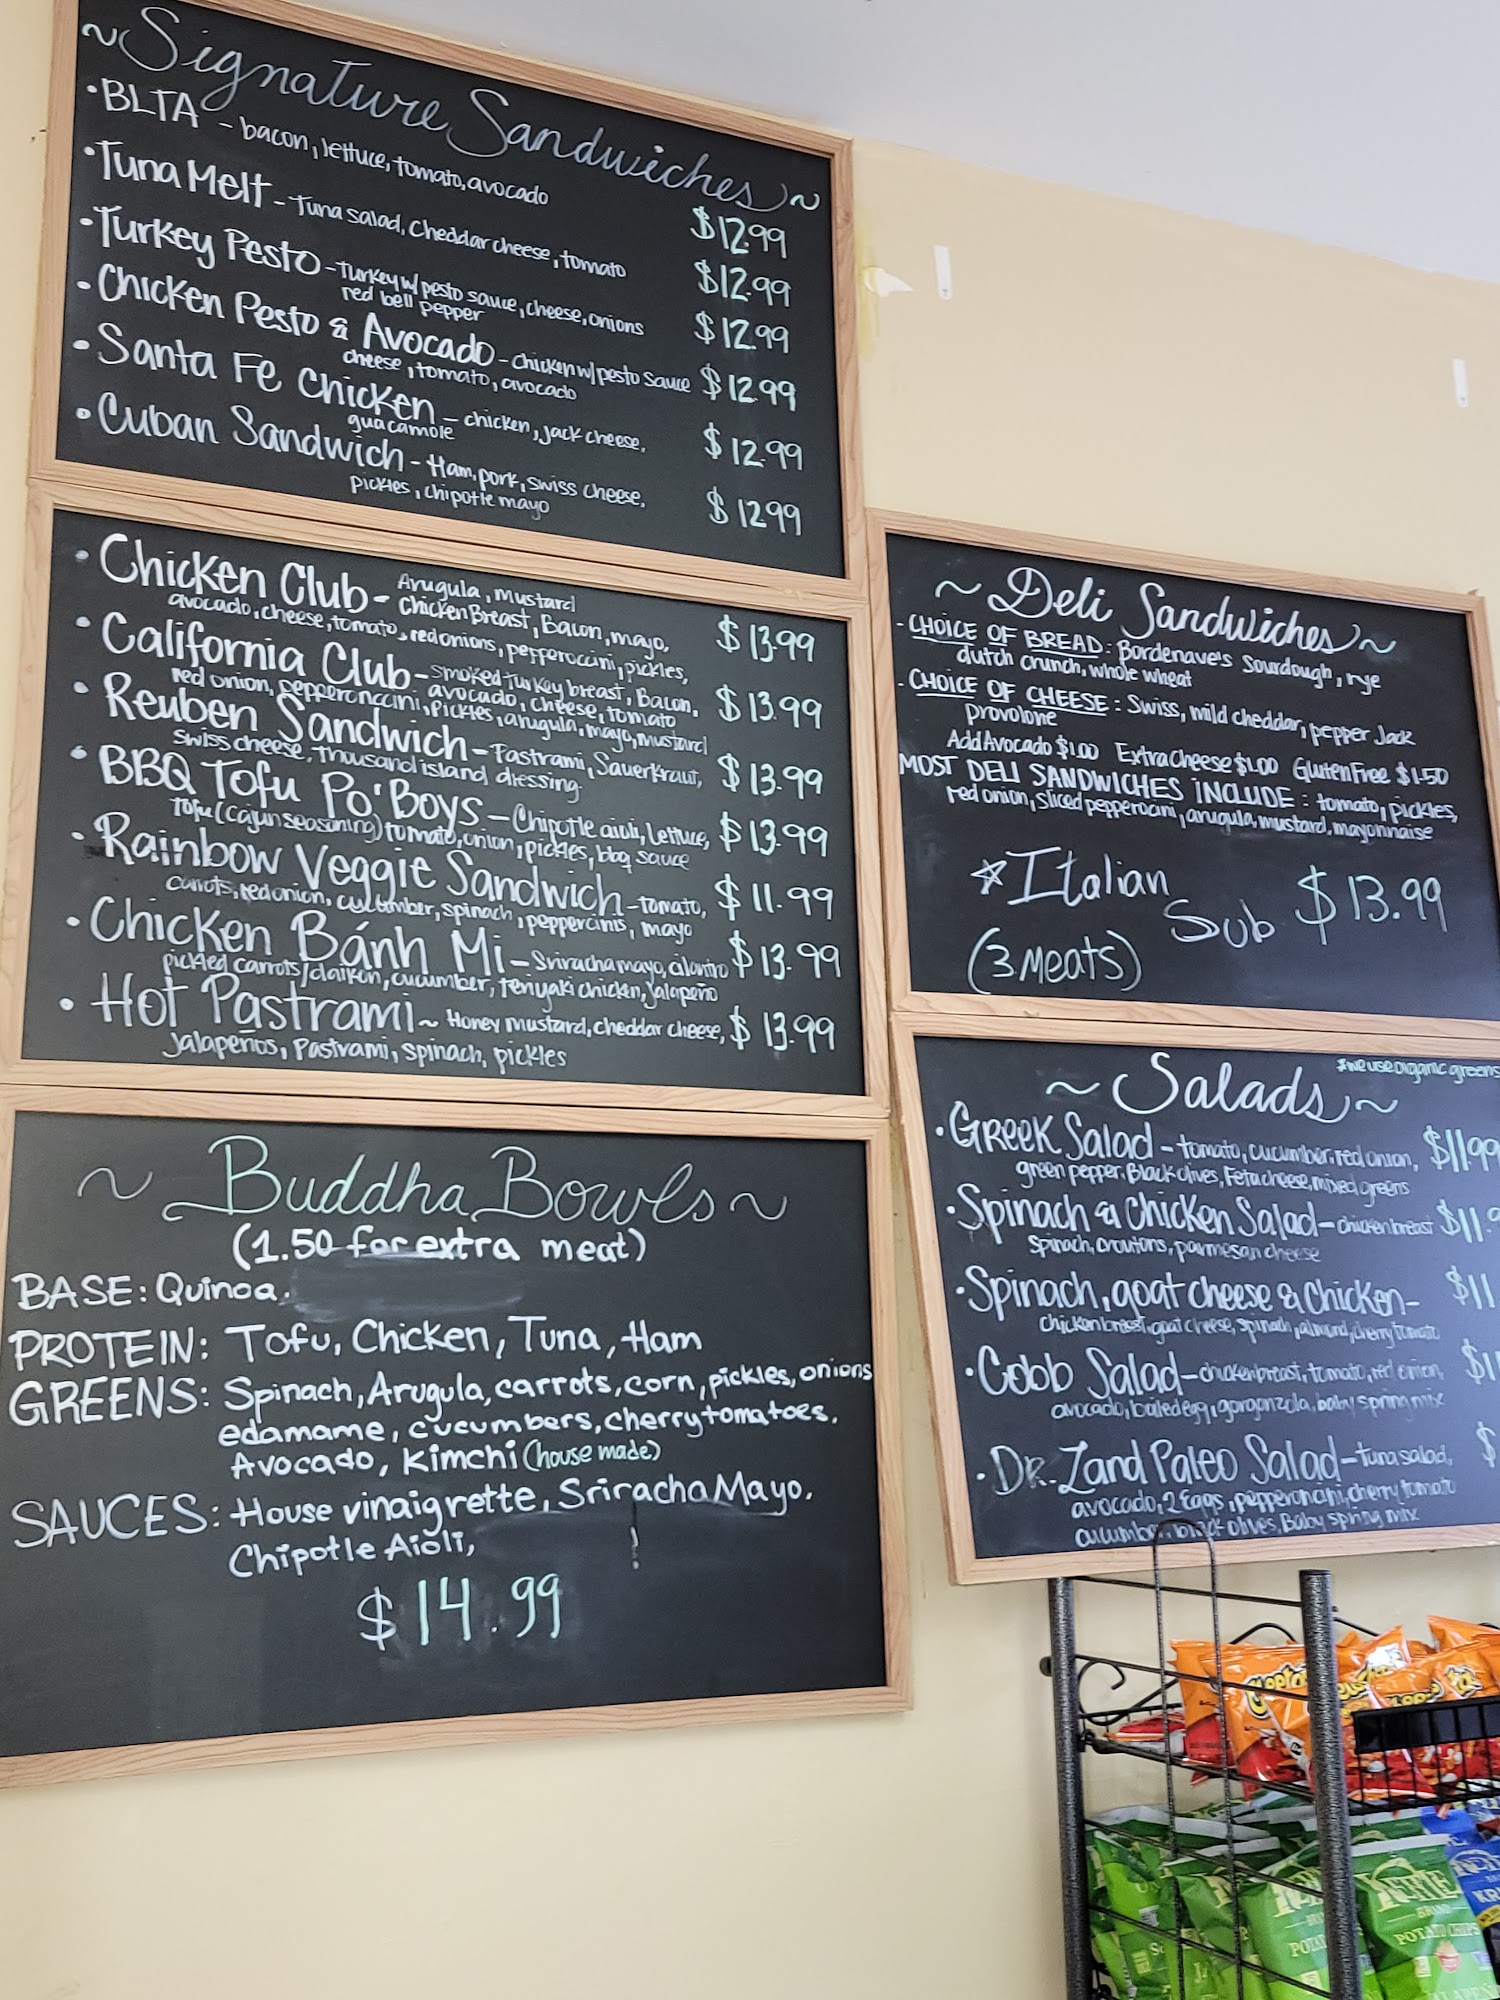 ~Signature Sandwiches~
•BLTA - bacon, lettuce, tomato, avocado $12.99
•Tuna Melt - Tuna salad, Cheddar cheese, tomato $12.99
•Turkey Pesto - Turkey w/ pesto sauce, cheese, onions $12.99
red bell pepper
•Chicken Pesto & Avocado - chicken w/ pesto sauce $12.99
cheese, tomato, avocado
•Santa Fe Chicken - chicken, jack cheese, $12.99
guacamole
•Cuban Sandwich - Ham, pork, swiss cheese, $12.99
pickles, chipotle mayo
Arugula, mustard
•Chicken Club - Chicken Breast, Bacon, mayo, $13.99
avocado, cheese, tomato, red onions, pepperoccini, pickles,
•California Club - smoked turkey breast, Bacon, $13.99
avocado, cheese, tomato
red onion, pepperonccini, pickles, arugula, mayo, mustard
•Reuben Sandwich - Pastrami, Sauerkraut, $13.99
swiss cheese, thousand island dressing.
•BBQ Tofu Po'Boys - Chipotle aioli, lettuce, $13.99
Tofu (cajun seasoning) tomato, onion, pickles, bbq sauce
•Rainbow Veggie Sandwich - tomato, $11.99
carrots, red onion, cucumber, spinach, peppercinis, mayo
•Chicken Bánh Mi - Sriracha mayo, cilantro $13.99
pickled carrots/daikon, cucumber, teriyaki chicken, jalapeño
•Hot Pastrami ~ Honey mustard, cheddar cheese, $13.99
jalapeños, Pastrami, spinach, pickles
~Buddha Bowls~
(1.50 for extra meat)
BASE: Quinoa,
PROTEIN: Tofu, Chicken, Tuna, Ham
GREENS: Spinach, Arugula, carrots, corn, pickles, onions
edamame, cucumbers, cherry tomatoes,
Avocado, Kimchi (house made)
SAUCES: House vinaigrette, Sriracha Mayo,
Chipotle Aioli,
$14.99
~Deli Sandwiches~
- CHOICE OF BREAD: Bordenave's Sourdough, rye
dutch crunch, whole wheat
- CHOICE OF CHEESE: Swiss, mild cheddar, pepper Jack
provolone
Add Avocado $1.00 Extra Cheese $1.00 Gluten Free $1.50
MOST DELI SANDWICHES INCLUDE: tomato, pickles,
red onion, sliced pepperocini, arugula, mustard, mayonnaise
Italian Sub $13.99
(3 Meats)
*we use organic greens
~Salads~
•Greek Salad - tomato, cucumber, red onion, $11.99
green pepper, Black olives, Feta cheese, mixed greens
•Spinach & Chicken Salad - chicken breast $11.9
Spinach, croutons, parmesan cheese
•Spinach, goat cheese & Chicken - $11
chicken breast, goat cheese, spinach, almond, cherry tomato
•Cobb Salad - chicken breast, tomato, red onion, $1
avocado, boiled egg, gorgonzola, baby spring mix
•Dr. Zand Paleo Salad - tuna salad, $
avocado, 2 Eggs, pepperoncini, cherry tomato
cucumber, black olives, Baby spring mix
Cheetos
KETTLE
BRAND
POTATO CHIPS
JALAPEÑO